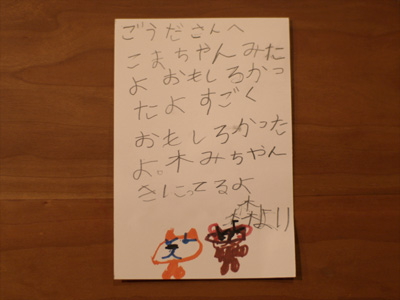 ごうださんへ
こまちゃんみた
よ おもしろかっ
たよ すごく
おもしろかった
よ。木みちゃん
きにってるよ
森より